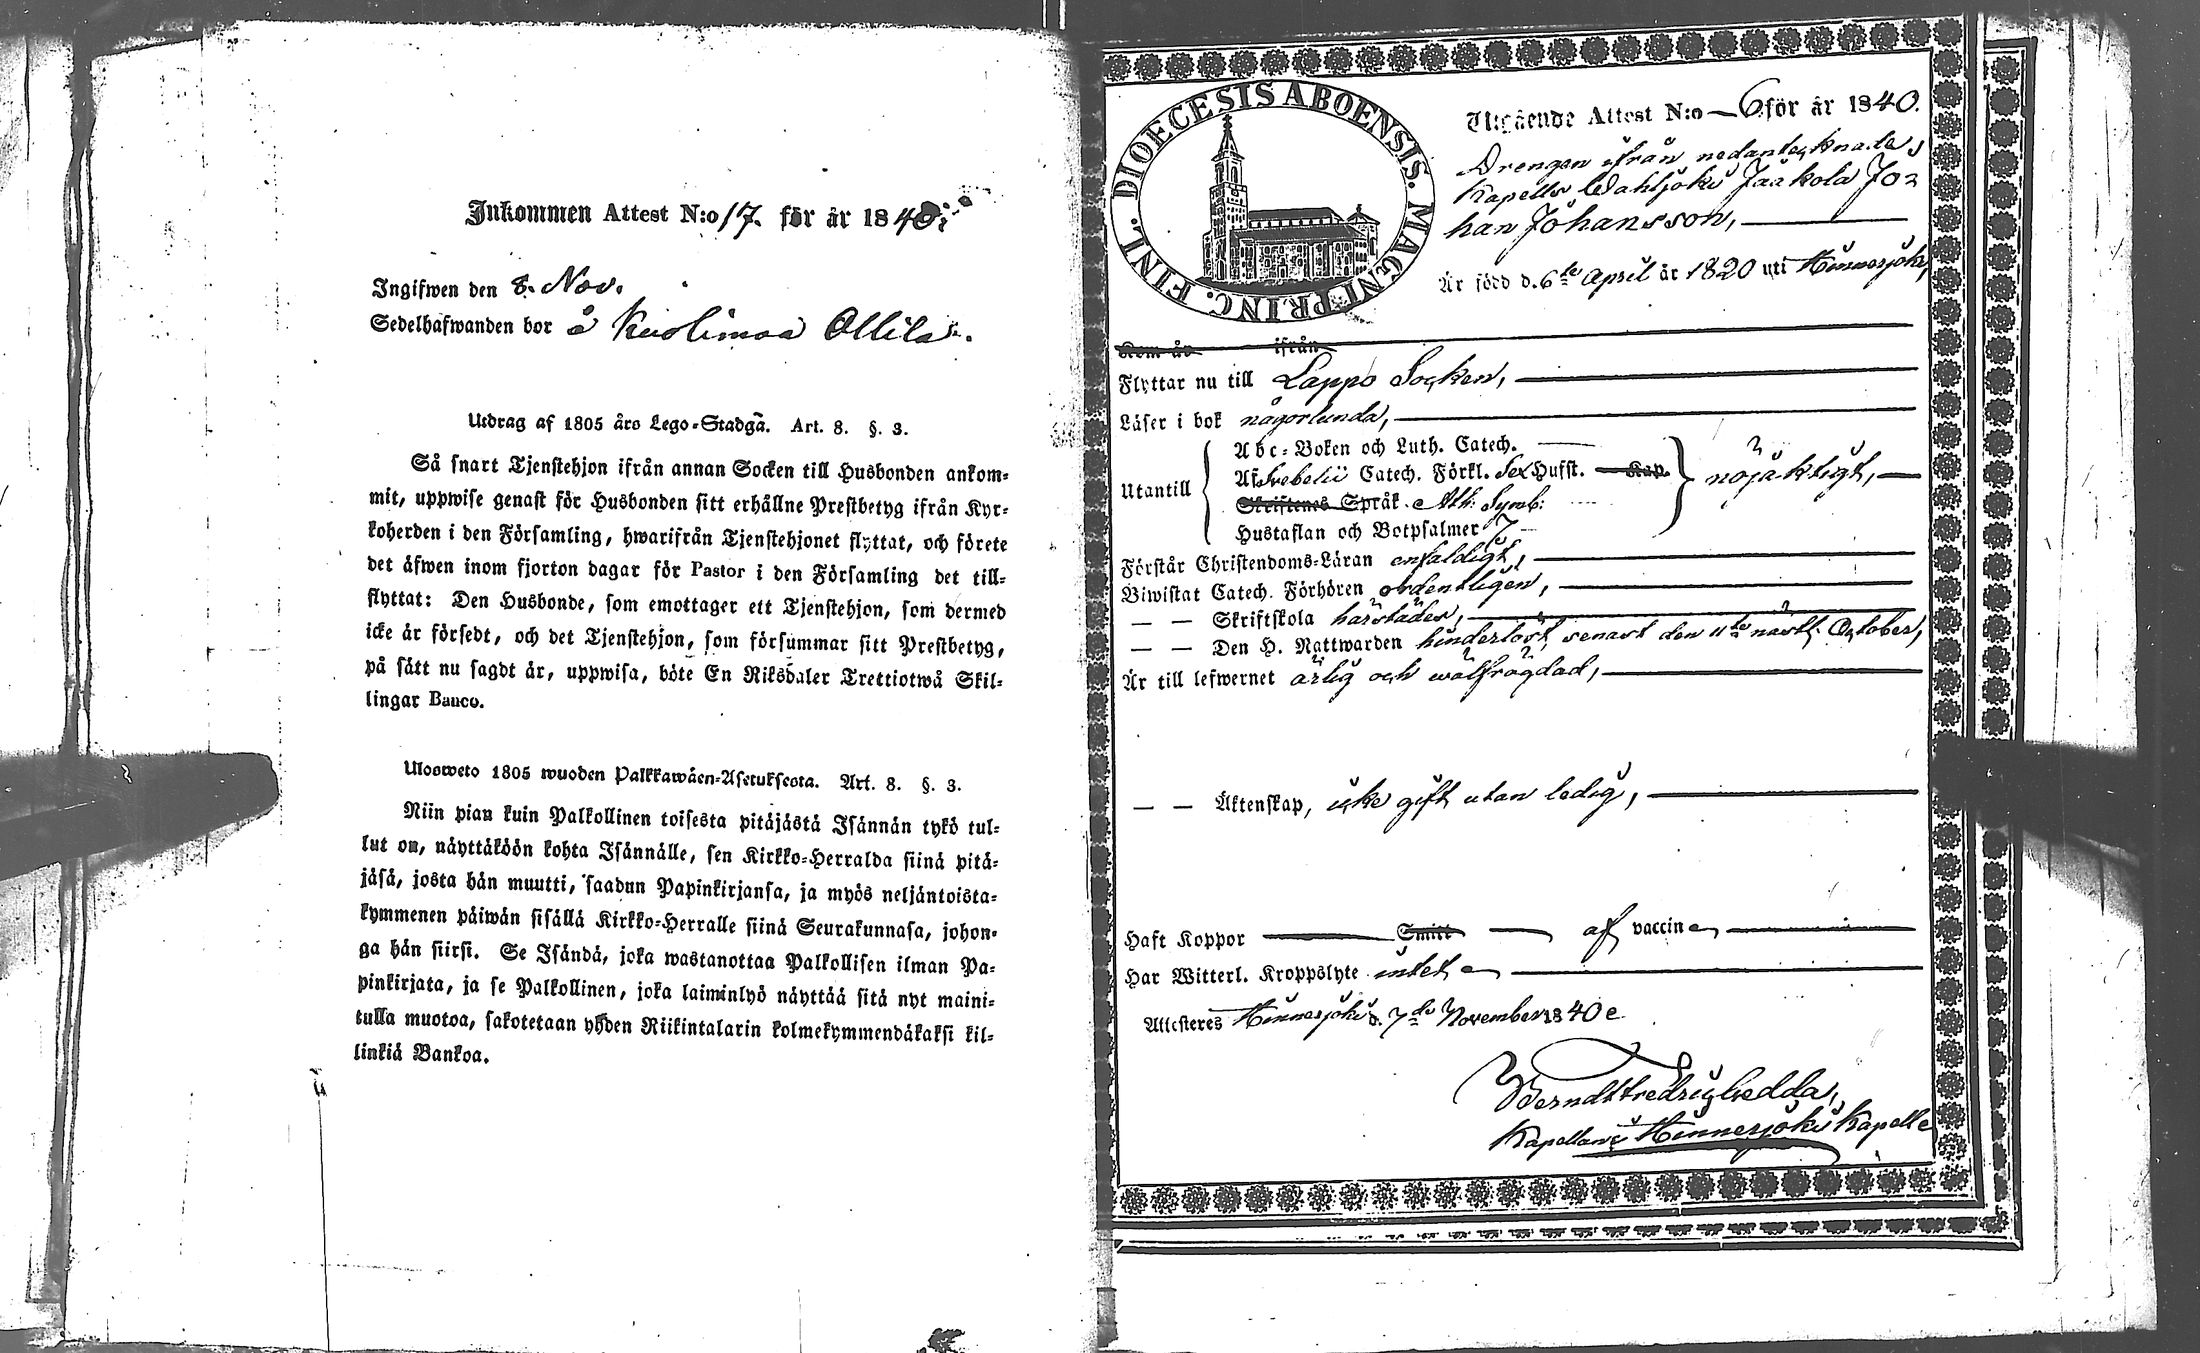 Inkommen Attest N:o 17. för år 1840.
Ingifwen den 8. Nov.
Sedelhafwanden bor å Kuolimaa Ollila.
Utdrag af 1805 års Lego-Stadga. Art. 8. §. 3.
Så snart Tjenstehjon ifrån annan Socken till Husbonden ankom-
mit, uppwise genast för Husbonden sitt erhållne Prestbetyg ifrån Kyr-
koherden i den Församling, hwarifrån Tjenstehjonet flyttat, och förete
det äfwen inom fjorton dagar för Pastor i den Församling det till-
flyttat: Den Husbonde, som emottager ett Tjenstehjon, som dermed
icke är försedt, och det Tjenstehjon, som försummar sitt Prestbetyg,
på sätt nu sagdt är, uppwisa, böte En Riksdaler Trettiotwå Skil-
lingar Banco.
Ulosweto 1805 wuoden Palkkawäen-Asetuksesta. Art. 8. §. 3.
Niin pian kuin Palkollinen toisesta pitäjästä Isännän tykö tul-
lut on, näyttäköön kohta Isännälle, sen Kirkko-Herralda siinä pitä-
jäsä, josta hän muutti, saadun Papinkirjansa, ja myös neljäntoista-
kymmenen päiwän sisällä Kirkko-Herralle siinä Seurakunnasa, johon-
ga hän siirsi. Se Isändä, joka wastanottaa Palkollisen ilman Pa-
pinkirjata, ja se Palkollinen, joka laiminlyö näyttää sitä nyt maini-
tulla muotoa, sakotetaan yhden Riikintalarin kolmekymmendäkaksi kil-
linkiä Bankoa.
FINL. DIOECESIS ABOENSIS. MAGNI PRINC.
Utgående Attest N:o 6 för år 1840.
Drengen ifrån nedantecknade
Kapells Wahljoki Jaakola Jo=
han Johansson,
Är född d. 6te April år 1820 uti Hinnerjoki,
Kom år ifrån
Flyttar nu till Lappo Socken,
Läser i bok någorlunda,
Abc-Boken och Luth. Catech.
Utantill Af Svebelii Catech. Förkl. Sex Hufst. Kap. nöjaktigt,
Skriftenes Språk. Ath. Symb:
Hustaflan och Botpsalmer 7
Förstår Christendoms-Läran enfaldigt,
Biwistat Catech. Förhören ordentligen,
— — Skriftskola härstädes,
— — Den H. Nattwarden hinderlöst, senast den 11te nästl. October,
Är till lefwernet ärlig och wälfrägdad,
— — Äktenskap, icke gift utan ledig,
Haft Koppor Smitt af vaccin
Har Witterl. Kroppslyte intet
Attesteras Hinnerjoki d. 7de November 1840
Berndt Fredric Hedda,
Kapellan i Hinnerjoki Kapell